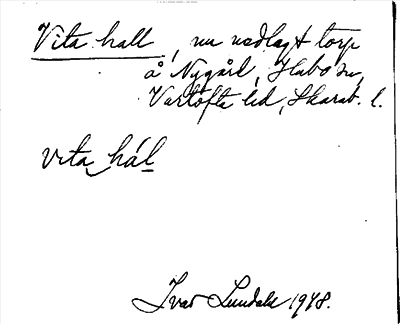 Vita hall, nu nedlagt torp
å Nygård, Habo sn,
Vartofta hd, Skarab. l.
vita hál
Ivar Lundahl 1948.